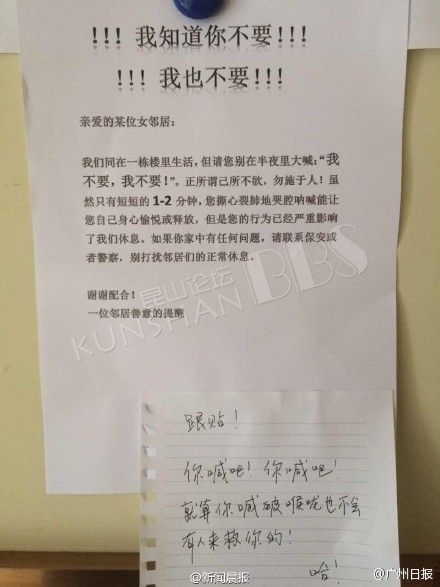 !!! 我知道你不要!!!
!!! 我也不要!!!
亲爱的某位女邻居:
我们同在一栋楼里生活,但请您别在半夜里大喊:“我
不要,我不要!”。正所谓己所不欲,勿施于人!虽
然只有短短的 1-2 分钟,您撕心裂肺地哭腔呐喊能让
您自己身心愉悦或释放,但是您的行为已经严重影响
了我们休息。如果你家中有任何问题,请联系保安或
者警察,别打扰邻居们的正常休息。
谢谢配合!
一位邻居善意的提醒
昆山论坛
KUNSHAN BBS
跟贴!
你喊吧!你喊吧!
就算你喊破喉咙也不会
有人来救你的!
哈!
@新闻晨报
@广州日报